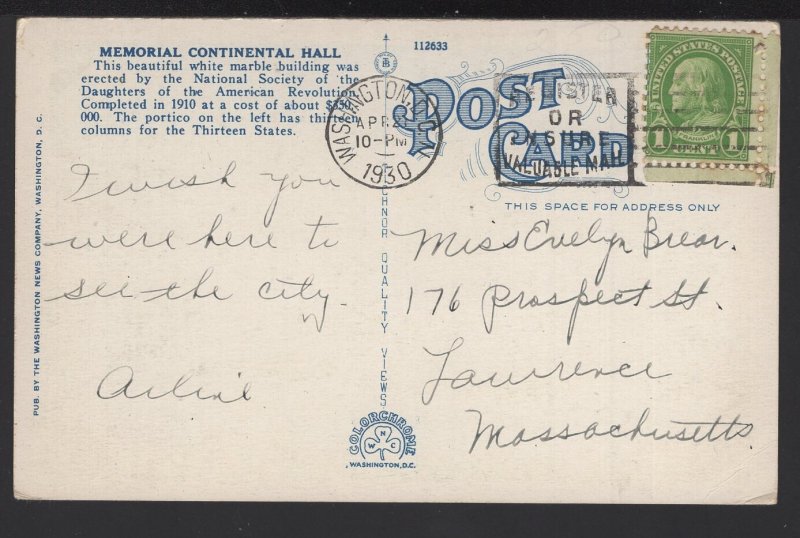 MEMORIAL CONTINENTAL HALL
This beautiful white marble building was
erected by the National Society of the
Daughters of the American Revolution.
Completed in 1910 at a cost of about $350,
000. The portico on the left has thirteen
columns for the Thirteen States.
112633
POST
CARD
WASHINGTON, D.C.
APR 2
10-PM
1930
REGISTER
OR
INSURE
VALUABLE MAIL
UNITED STATES POSTAGE
FRANKLIN
1 1
THIS SPACE FOR ADDRESS ONLY
I wish you
were here to
see the city.
Arline
Miss Evelyn Brear.
176 Prospect St.
Lawrence
Massachusetts
PUB. BY THE WASHINGTON NEWS COMPANY, WASHINGTON, D. C.
TECHNOR QUALITY VIEWS
COLORCHROME
W N C
WASHINGTON, D.C.